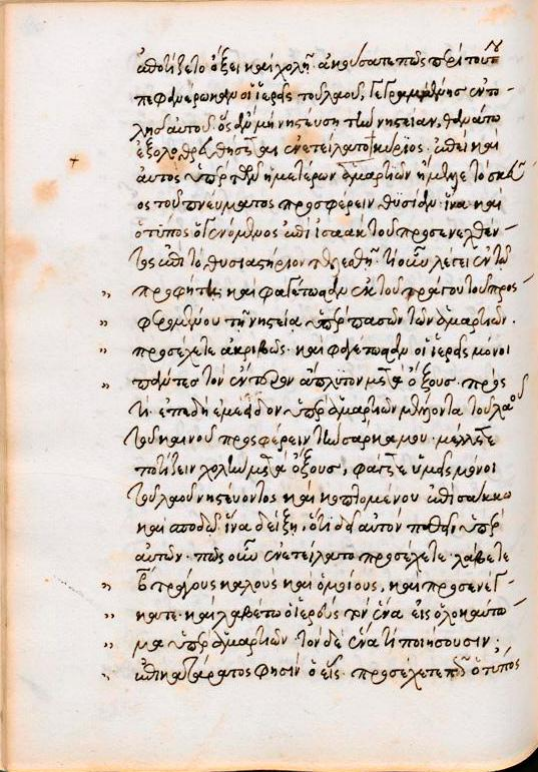 ἐποτίζετο ὄξει καὶ χολῇ. ἀκούσατε πῶς περὶ τούτου
πεφανέρωκαν οἱ ἱερεῖς τοῦ λαοῦ, γεγραμμένης ἐντο-
λῆς αὐτοῦ. ὃς ἂν μὴ νηστεύσῃ τὴν νηστείαν, θανάτῳ
ἐξολοθρευθήσεται ἐνετείλατο κύριος. ἐπεὶ καὶ
αὐτὸς ὑπὲρ τῶν ἡμετέρων ἁμαρτιῶν ἤμελλε τὸ σκεῦ
ος τοῦ πνεύματος προσφέρειν θυσίαν. ἵνα καὶ
ὁ τύπος ὁ γενόμενος ἐπὶ ἰσαὰκ τοῦ προσενεχθέν-
τος ἐπὶ τὸ θυσιαστήριον τελεσθῇ. τί οὖν λέγει ἐν τῷ
προφήτῃ καὶ φαγέτωσαν ἐκ τοῦ τράγου τοῦ προσ-
φερομένου τῇ νηστείᾳ ὑπὲρ πασῶν τῶν ἁμαρτιῶν.
προσέχετε ἀκριβῶς. καὶ φαγέτωσαν οἱ ἱερεῖς μόνοι
πάντες τὸν ἔντερον ἄπλυτον μετὰ ὄξους. πρὸς
τί. ἐπειδὴ ἐμὲ ὑπὲρ ἁμαρτιῶν μέλλοντα τοῦ λαοῦ
τοῦ καινοῦ προσφέρειν τὴν σάρκα μου. μέλλετε
ποτίζειν χολὴν μετὰ ὄξους, φάγετε ὑμεῖς μόνοι
τοῦ λαοῦ νηστεύοντος καὶ κοπτομένου ἐπὶ σάκκω
καὶ σποδῶ. ἵνα δείξῃ, ὅτι δεῖ αὐτὸν παθεῖν ὑπὲρ
αὐτῶν. πῶς οὖν ἐνετείλατο προσέχετε. λάβετε
β τράγους καλοὺς καὶ ὁμοίους, καὶ προσενέγ-
κατε. καὶ λαβέτω ὁ ἱερεὺς τὸν ἕνα εἰς ὁλοκαύτω-
μα ὑπὲρ ἁμαρτιῶν. τὸν δὲ ἕνα τί ποιήσουσιν;
ἐπικατάρατος φησὶν ὁ εἷς. προσέχετε πῶς ὁ τύπος